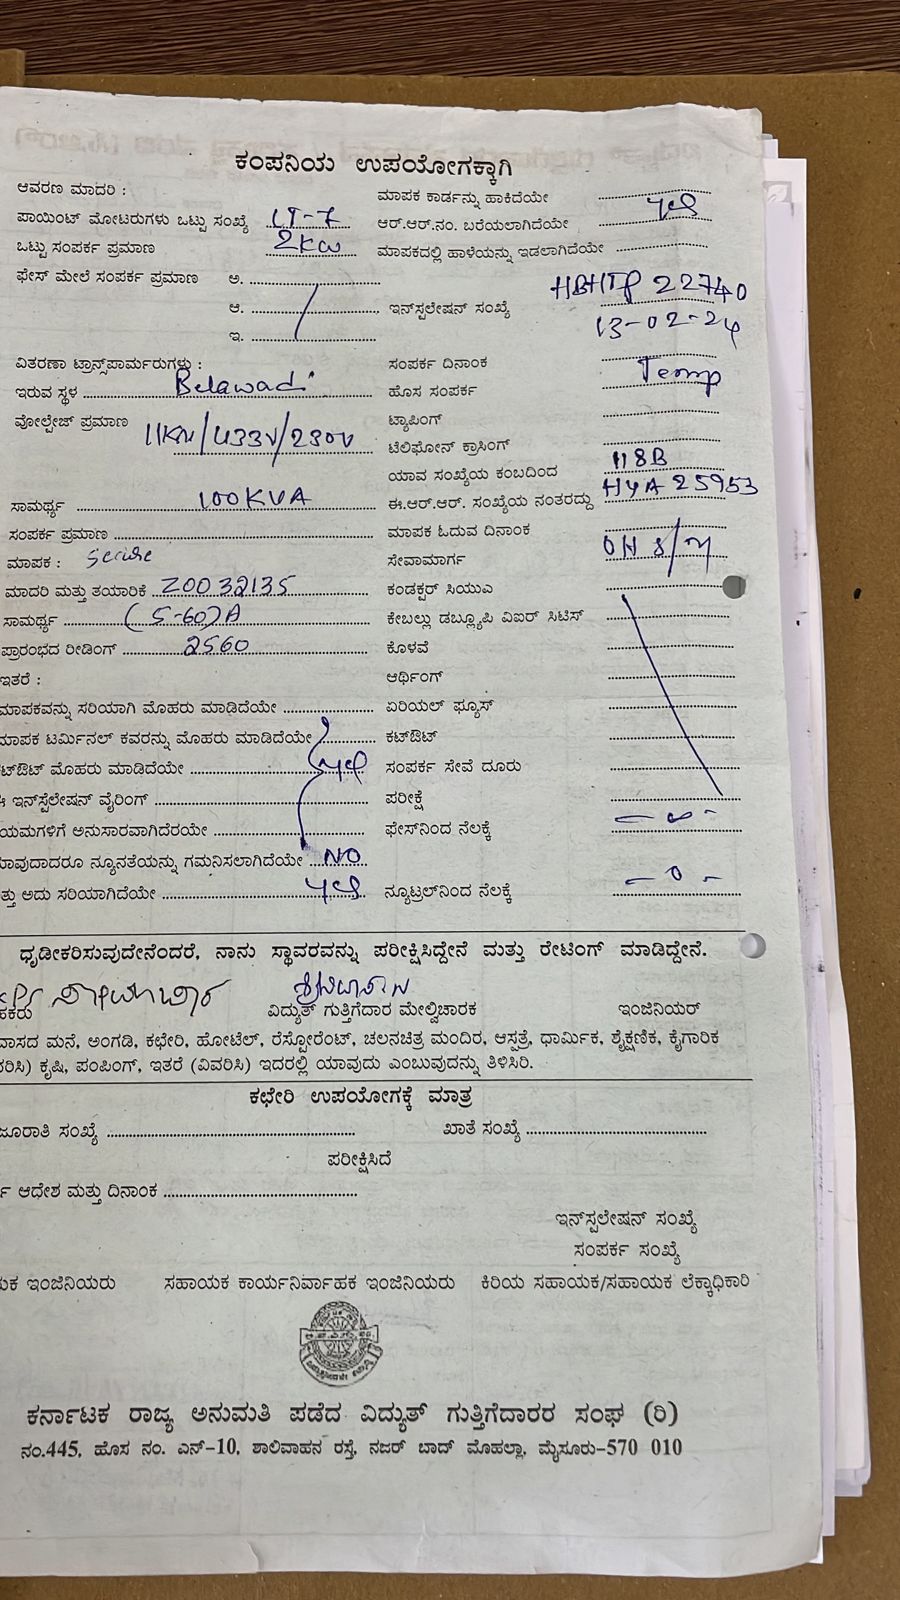 ಕಂಪನಿಯ ಉಪಯೋಗಕ್ಕಾಗಿ
ಆವರಣ ಮಾದರಿ :
ಮಾಪಕ ಕಾರ್ಡನ್ನು ಹಾಕಿದೆಯೇ
ಪಾಯಿಂಟ್ ಮೋಟರುಗಳು ಒಟ್ಟು ಸಂಖ್ಯೆ LT-7
ಆರ್.ಆರ್.ನಂ. ಬರೆಯಲಾಗಿದೆಯೇ yes
ಒಟ್ಟು ಸಂಪರ್ಕ ಪ್ರಮಾಣ 2KW
ಮಾಪಕದಲ್ಲಿ ಹಾಳೆಯನ್ನು ಇಡಲಾಗಿದೆಯೇ
ಫೇಸ್ ಮೇಲೆ ಸಂಪರ್ಕ ಪ್ರಮಾಣ ಅ.
ಆ.
ಇನ್‌ಸ್ಪಲೇಷನ್ ಸಂಖ್ಯೆ HBHTP 22740
ಇ.
13-02-24
ವಿತರಣಾ ಟ್ರಾನ್ಸ್‌ಪಾರ್ಮರುಗಳು :
ಸಂಪರ್ಕ ದಿನಾಂಕ
ಇರುವ ಸ್ಥಳ Belawadi
ಹೊಸ ಸಂಪರ್ಕ Temp
ವೋಲ್ಟೇಜ್ ಪ್ರಮಾಣ 11KV/433V/230V
ಟ್ಯಾಪಿಂಗ್
ಟೆಲಿಫೋನ್ ಕ್ರಾಸಿಂಗ್
ಯಾವ ಸಂಖ್ಯೆಯ ಕಂಬದಿಂದ 118B
ಸಾಮರ್ಥ್ಯ 100KVA
ಈ.ಆರ್.ಆರ್. ಸಂಖ್ಯೆಯ ನಂತರದ್ದು HYA 25953
ಸಂಪರ್ಕ ಪ್ರಮಾಣ
ಮಾಪಕ ಓದುವ ದಿನಾಂಕ
ಮಾಪಕ : Secure
ಸೇವಾಮಾರ್ಗ OH S/M
ಮಾದರಿ ಮತ್ತು ತಯಾರಿಕೆ Z0032135
ಕಂಡಕ್ಟರ್ ಸಿಯುಎ
ಸಾಮರ್ಥ್ಯ (5-60)A
ಕೇಬಲ್ಲು ಡಬ್ಲ್ಯೂಪಿ ವಿಐರ್ ಸಿಟಿಸ್
ಪ್ರಾರಂಭದ ರೀಡಿಂಗ್ 2560
ಕೊಳವೆ
ಇತರೆ :
ಆರ್ಥಿಂಗ್
ಮಾಪಕವನ್ನು ಸರಿಯಾಗಿ ಮೊಹರು ಮಾಡಿದೆಯೇ
ಏರಿಯಲ್ ಫ್ಯೂಸ್
ಮಾಪಕ ಟರ್ಮಿನಲ್ ಕವರನ್ನು ಮೊಹರು ಮಾಡಿದೆಯೇ
ಕಟ್‌ಔಟ್
ಟ್‌ಔಟ್ ಮೊಹರು ಮಾಡಿದೆಯೇ yes
ಸಂಪರ್ಕ ಸೇವೆ ದೂರು
ಇನ್‌ಸ್ಪೆಲೇಷನ್ ವೈರಿಂಗ್
ಪರೀಕ್ಷೆ
ಯಮಗಳಿಗೆ ಅನುಸಾರವಾಗಿದೆರಯೇ
ಫೇಸ್‌ನಿಂದ ನೆಲಕ್ಕೆ - ∞ -
ಾವುದಾದರೂ ನ್ಯೂನತೆಯನ್ನು ಗಮನಿಸಲಾಗಿದೆಯೇ NO
ತ್ತು ಅದು ಸರಿಯಾಗಿದೆಯೇ yes
ನ್ಯೂಟ್ರಲ್‌ನಿಂದ ನೆಲಕ್ಕೆ - 0 -
ಧೃಡೀಕರಿಸುವುದೇನೆಂದರೆ, ನಾನು ಸ್ಥಾವರವನ್ನು ಪರೀಕ್ಷಿಸಿದ್ದೇನೆ ಮತ್ತು ರೇಟಿಂಗ್ ಮಾಡಿದ್ದೇನೆ.
ಹಕರು
ವಿದ್ಯುತ್ ಗುತ್ತಿಗೆದಾರ ಮೇಲ್ವಿಚಾರಕ
ಇಂಜಿನಿಯರ್
ವಾಸದ ಮನೆ, ಅಂಗಡಿ, ಕಛೇರಿ, ಹೋಟೆಲ್, ರೆಸ್ಟೋರೆಂಟ್, ಚಲನಚಿತ್ರ ಮಂದಿರ, ಆಸ್ಪತ್ರೆ, ಧಾರ್ಮಿಕ, ಶೈಕ್ಷಣಿಕ, ಕೈಗಾರಿಕ
ವರಿಸಿ) ಕೃಷಿ, ಪಂಪಿಂಗ್, ಇತರೆ (ವಿವರಿಸಿ) ಇದರಲ್ಲಿ ಯಾವುದು ಎಂಬುವುದನ್ನು ತಿಳಿಸಿರಿ.
ಕಛೇರಿ ಉಪಯೋಗಕ್ಕೆ ಮಾತ್ರ
ಜೂರಾತಿ ಸಂಖ್ಯೆ
ಖಾತೆ ಸಂಖ್ಯೆ
ಪರೀಕ್ಷಿಸಿದೆ
ಆದೇಶ ಮತ್ತು ದಿನಾಂಕ
ಇನ್‌ಸ್ಪಲೇಷನ್ ಸಂಖ್ಯೆ
ಸಂಪರ್ಕ ಸಂಖ್ಯೆ
ಯಕ ಇಂಜಿನಿಯರು
ಸಹಾಯಕ ಕಾರ್ಯನಿರ್ವಾಹಕ ಇಂಜಿನಿಯರು
ಕಿರಿಯ ಸಹಾಯಕ/ಸಹಾಯಕ ಲೆಕ್ಕಾಧಿಕಾರಿ
ಕರ್ನಾಟಕ ರಾಜ್ಯ ಅನುಮತಿ ಪಡೆದ ವಿದ್ಯುತ್ ಗುತ್ತಿಗೆದಾರರ ಸಂಘ (ರಿ)
ನಂ.445, ಹೊಸ ನಂ. ಎನ್-10, ಶಾಲಿವಾಹನ ರಸ್ತೆ, ನಜರ್ ಬಾದ್ ಮೊಹಲ್ಲಾ, ಮೈಸೂರು-570 010